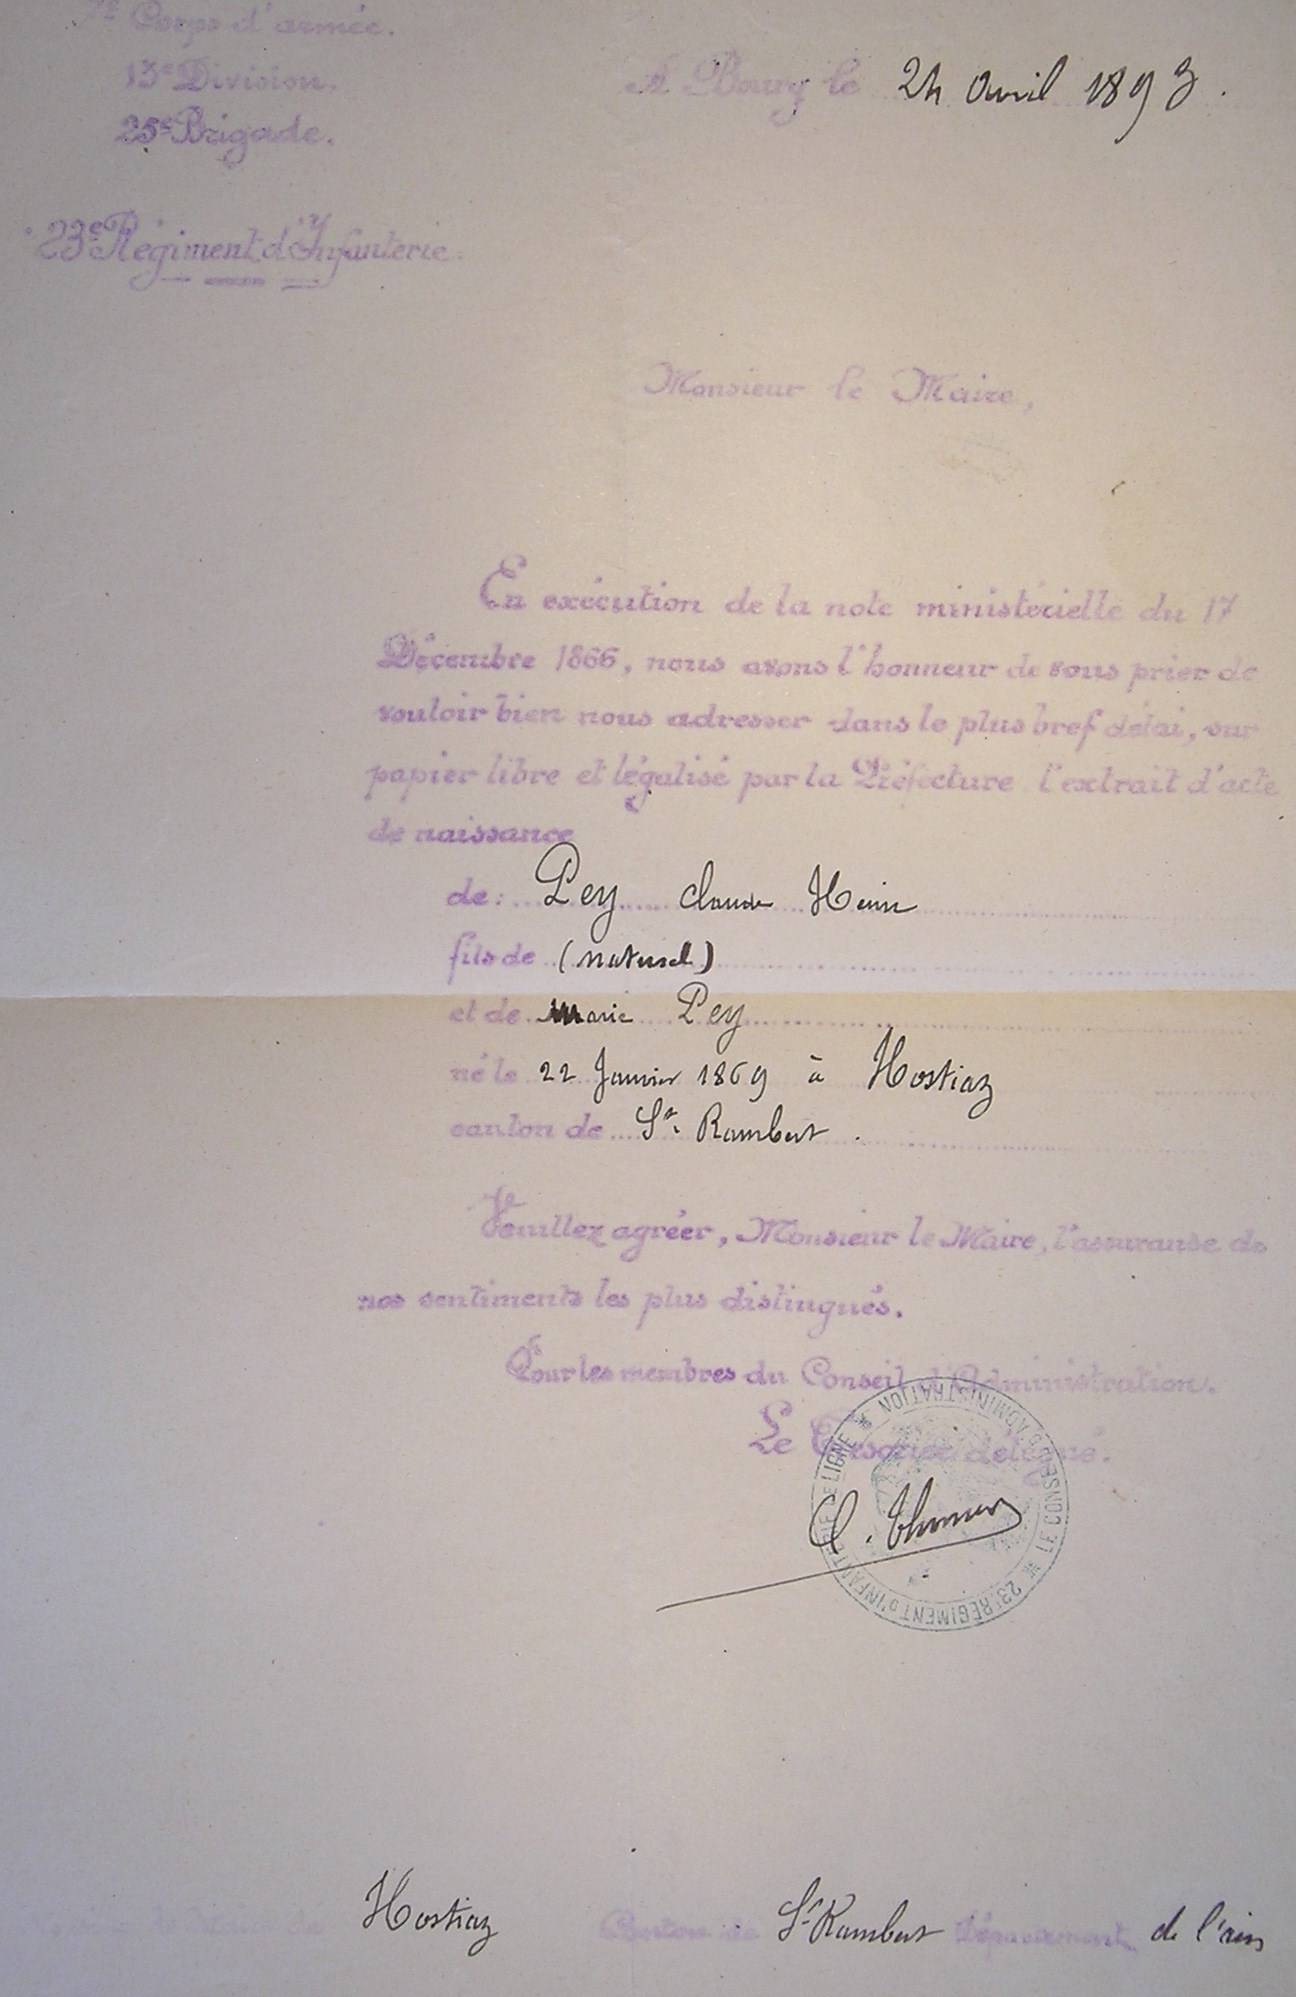 7e Corps d'armée.
13e Division.
25e Brigade.
A Bourg le 24 Avril 1893.
23e Régiment d'Infanterie.
Monsieur le Maire,
En exécution de la note ministérielle du 17
Décembre 1866, nous avons l'honneur de vous prier de
vouloir bien nous adresser dans le plus bref délai, sur
papier libre et légalisé par la Préfecture l'extrait d'acte
de naissance
de: Pey Claude
fils de (naturel)
et de Marie Pey
né le 22 Janvier 1869 à Hostiaz
canton de St Rambert.
Veuillez agréer, Monsieur le Maire, l'assurance de
nos sentiments les plus distingués.
Pour les membres du Conseil d'Administration.
Le Trésorier délégué.
23e RÉGIMENT D'INFANTERIE DE LIGNE * LE CONSEIL D'ADMINISTRATION *
Hostiaz Canton de St Rambert Département de l'ain